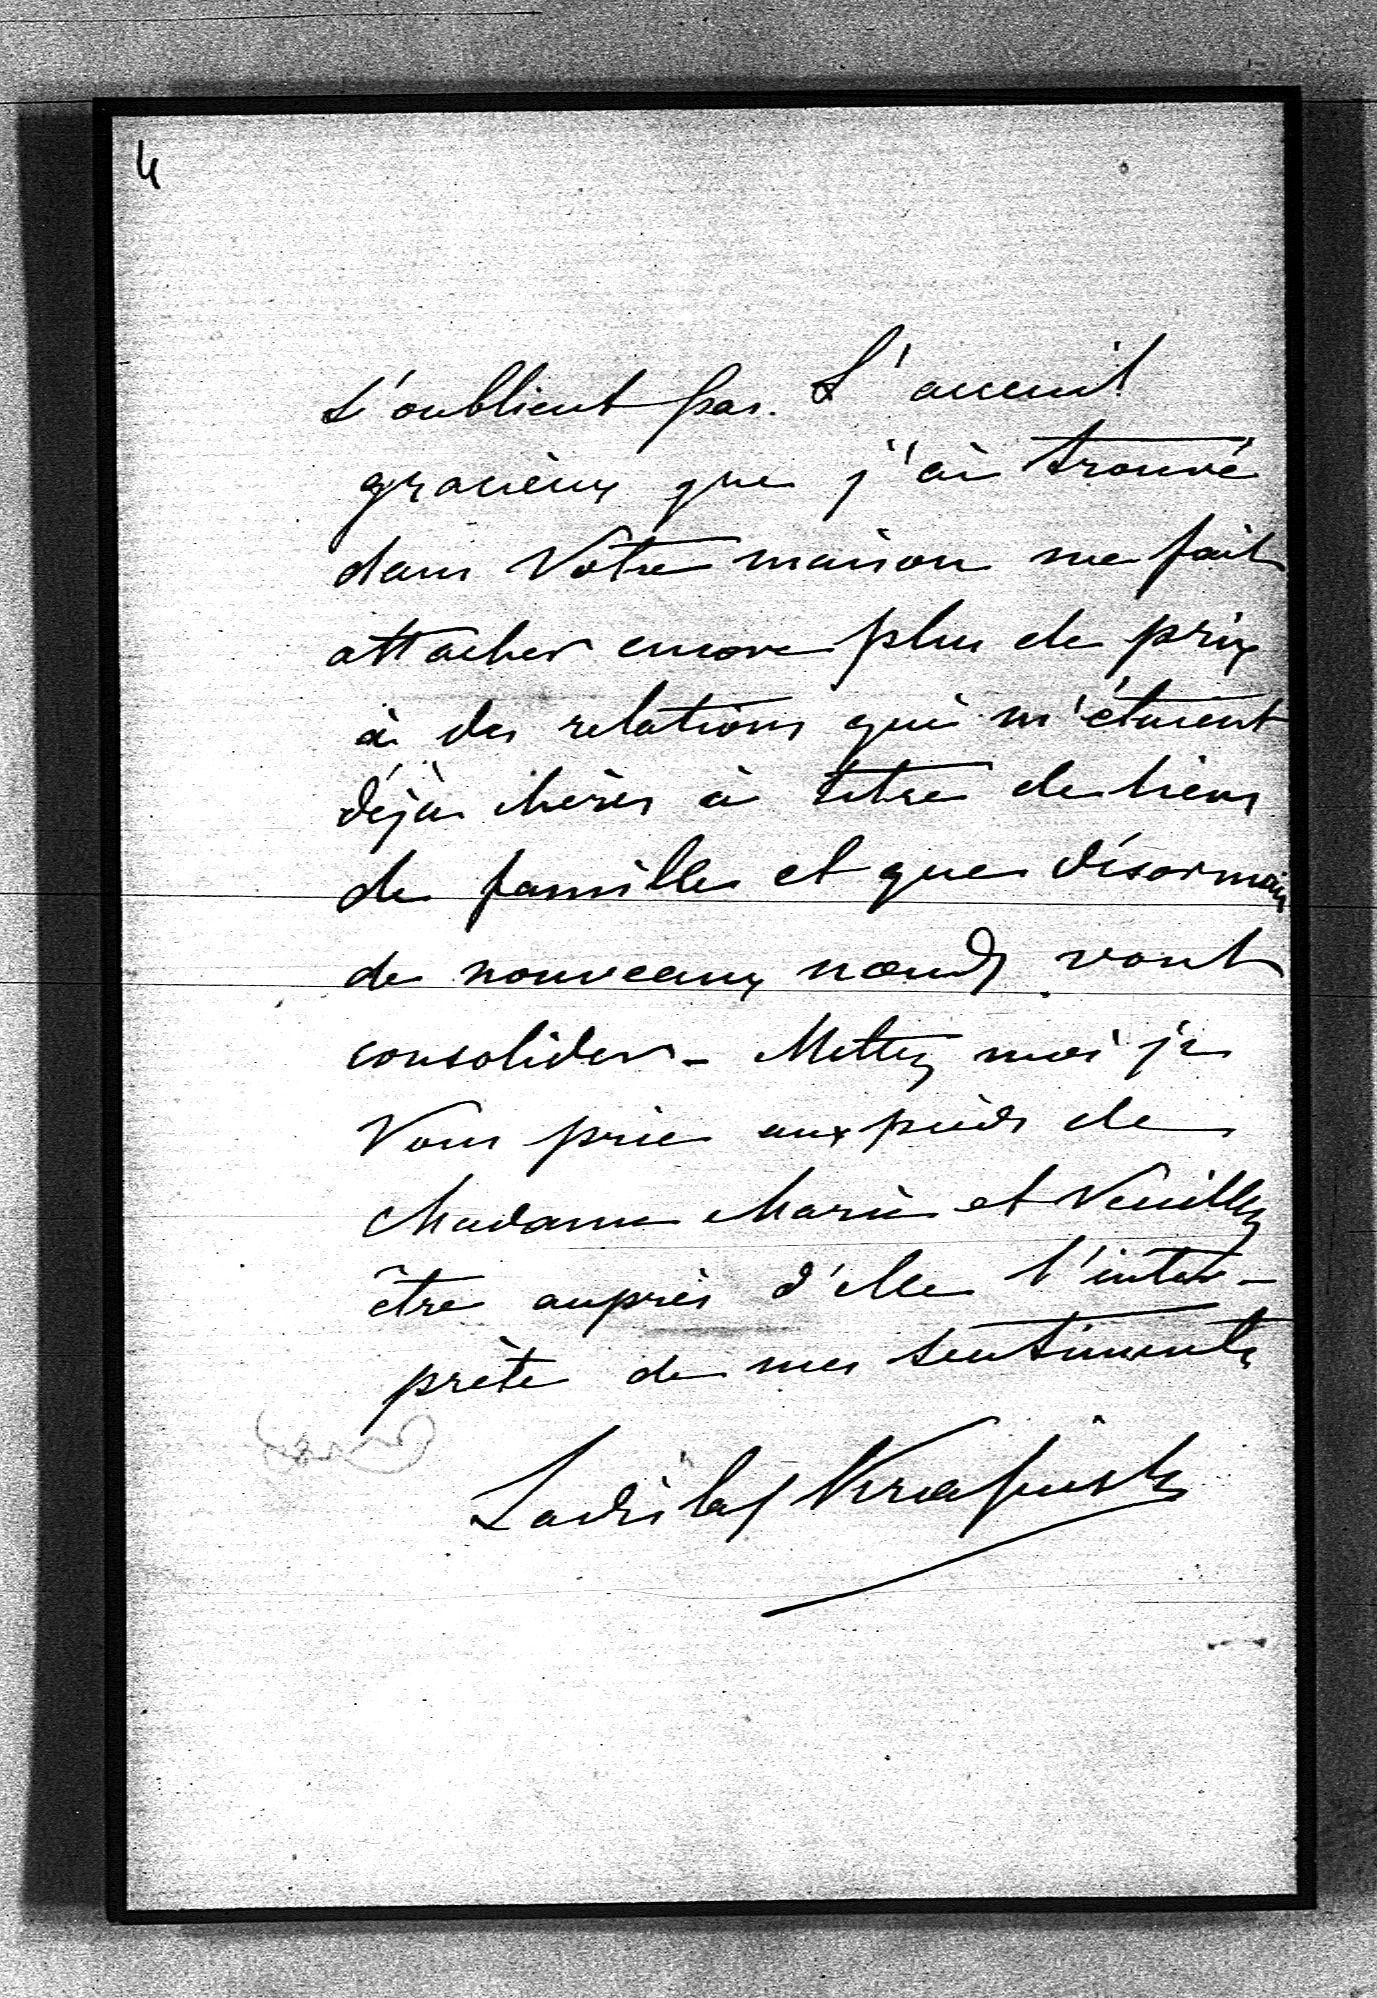 4
s'oublient pas. L'acceuil
gracieux que j'ai trouvé
dans Votre maison me fait
attacher encore plus de prix
à des relations qui m'étaient
déjà chères à titre de liens
de famille et que désormais
de nouveaux nœuds vont
consolider - Mettez moi je
Vous prie aux pieds de
Madame Marie et Veuillez
être auprès d'elle l'inter-
prète de mes sentiments
Ladislas